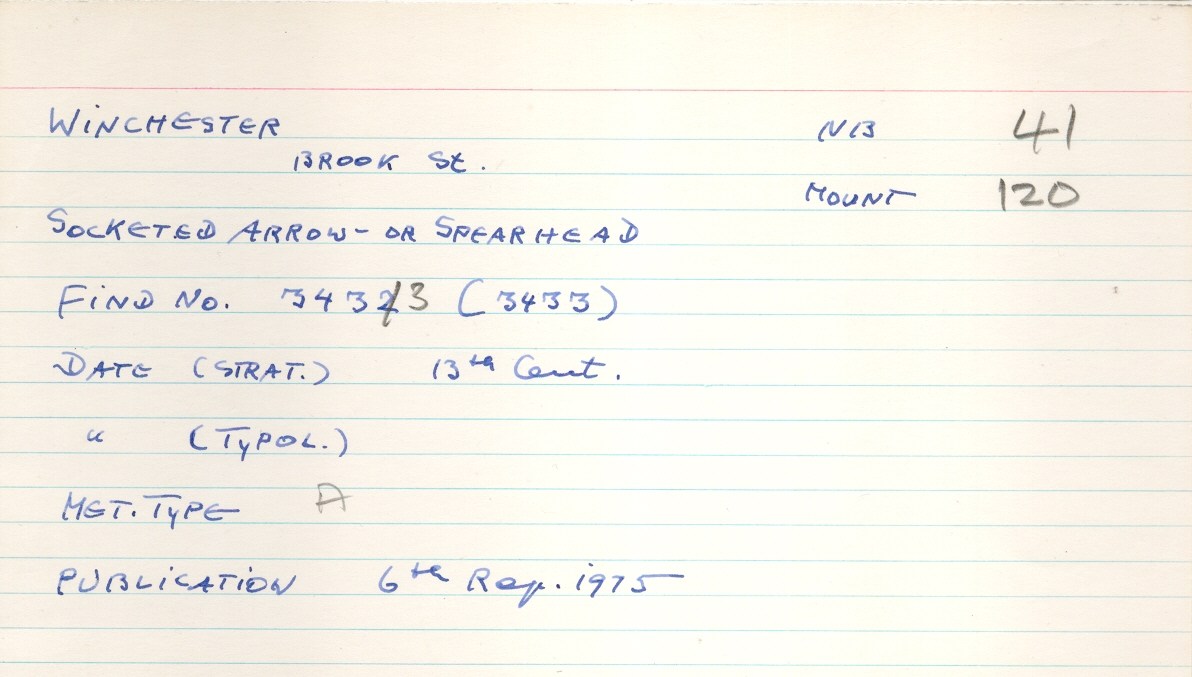 WINCHESTER NB 41
BROOK St.
MOUNT 120
SOCKETED ARROW- OR SPEARHEAD
FIND No. 3432/3 (3433)
DATE (STRAT.) 13th Cent.
" (TYPOL.)
MET. TYPE A
PUBLICATION 6th Rep. 1975